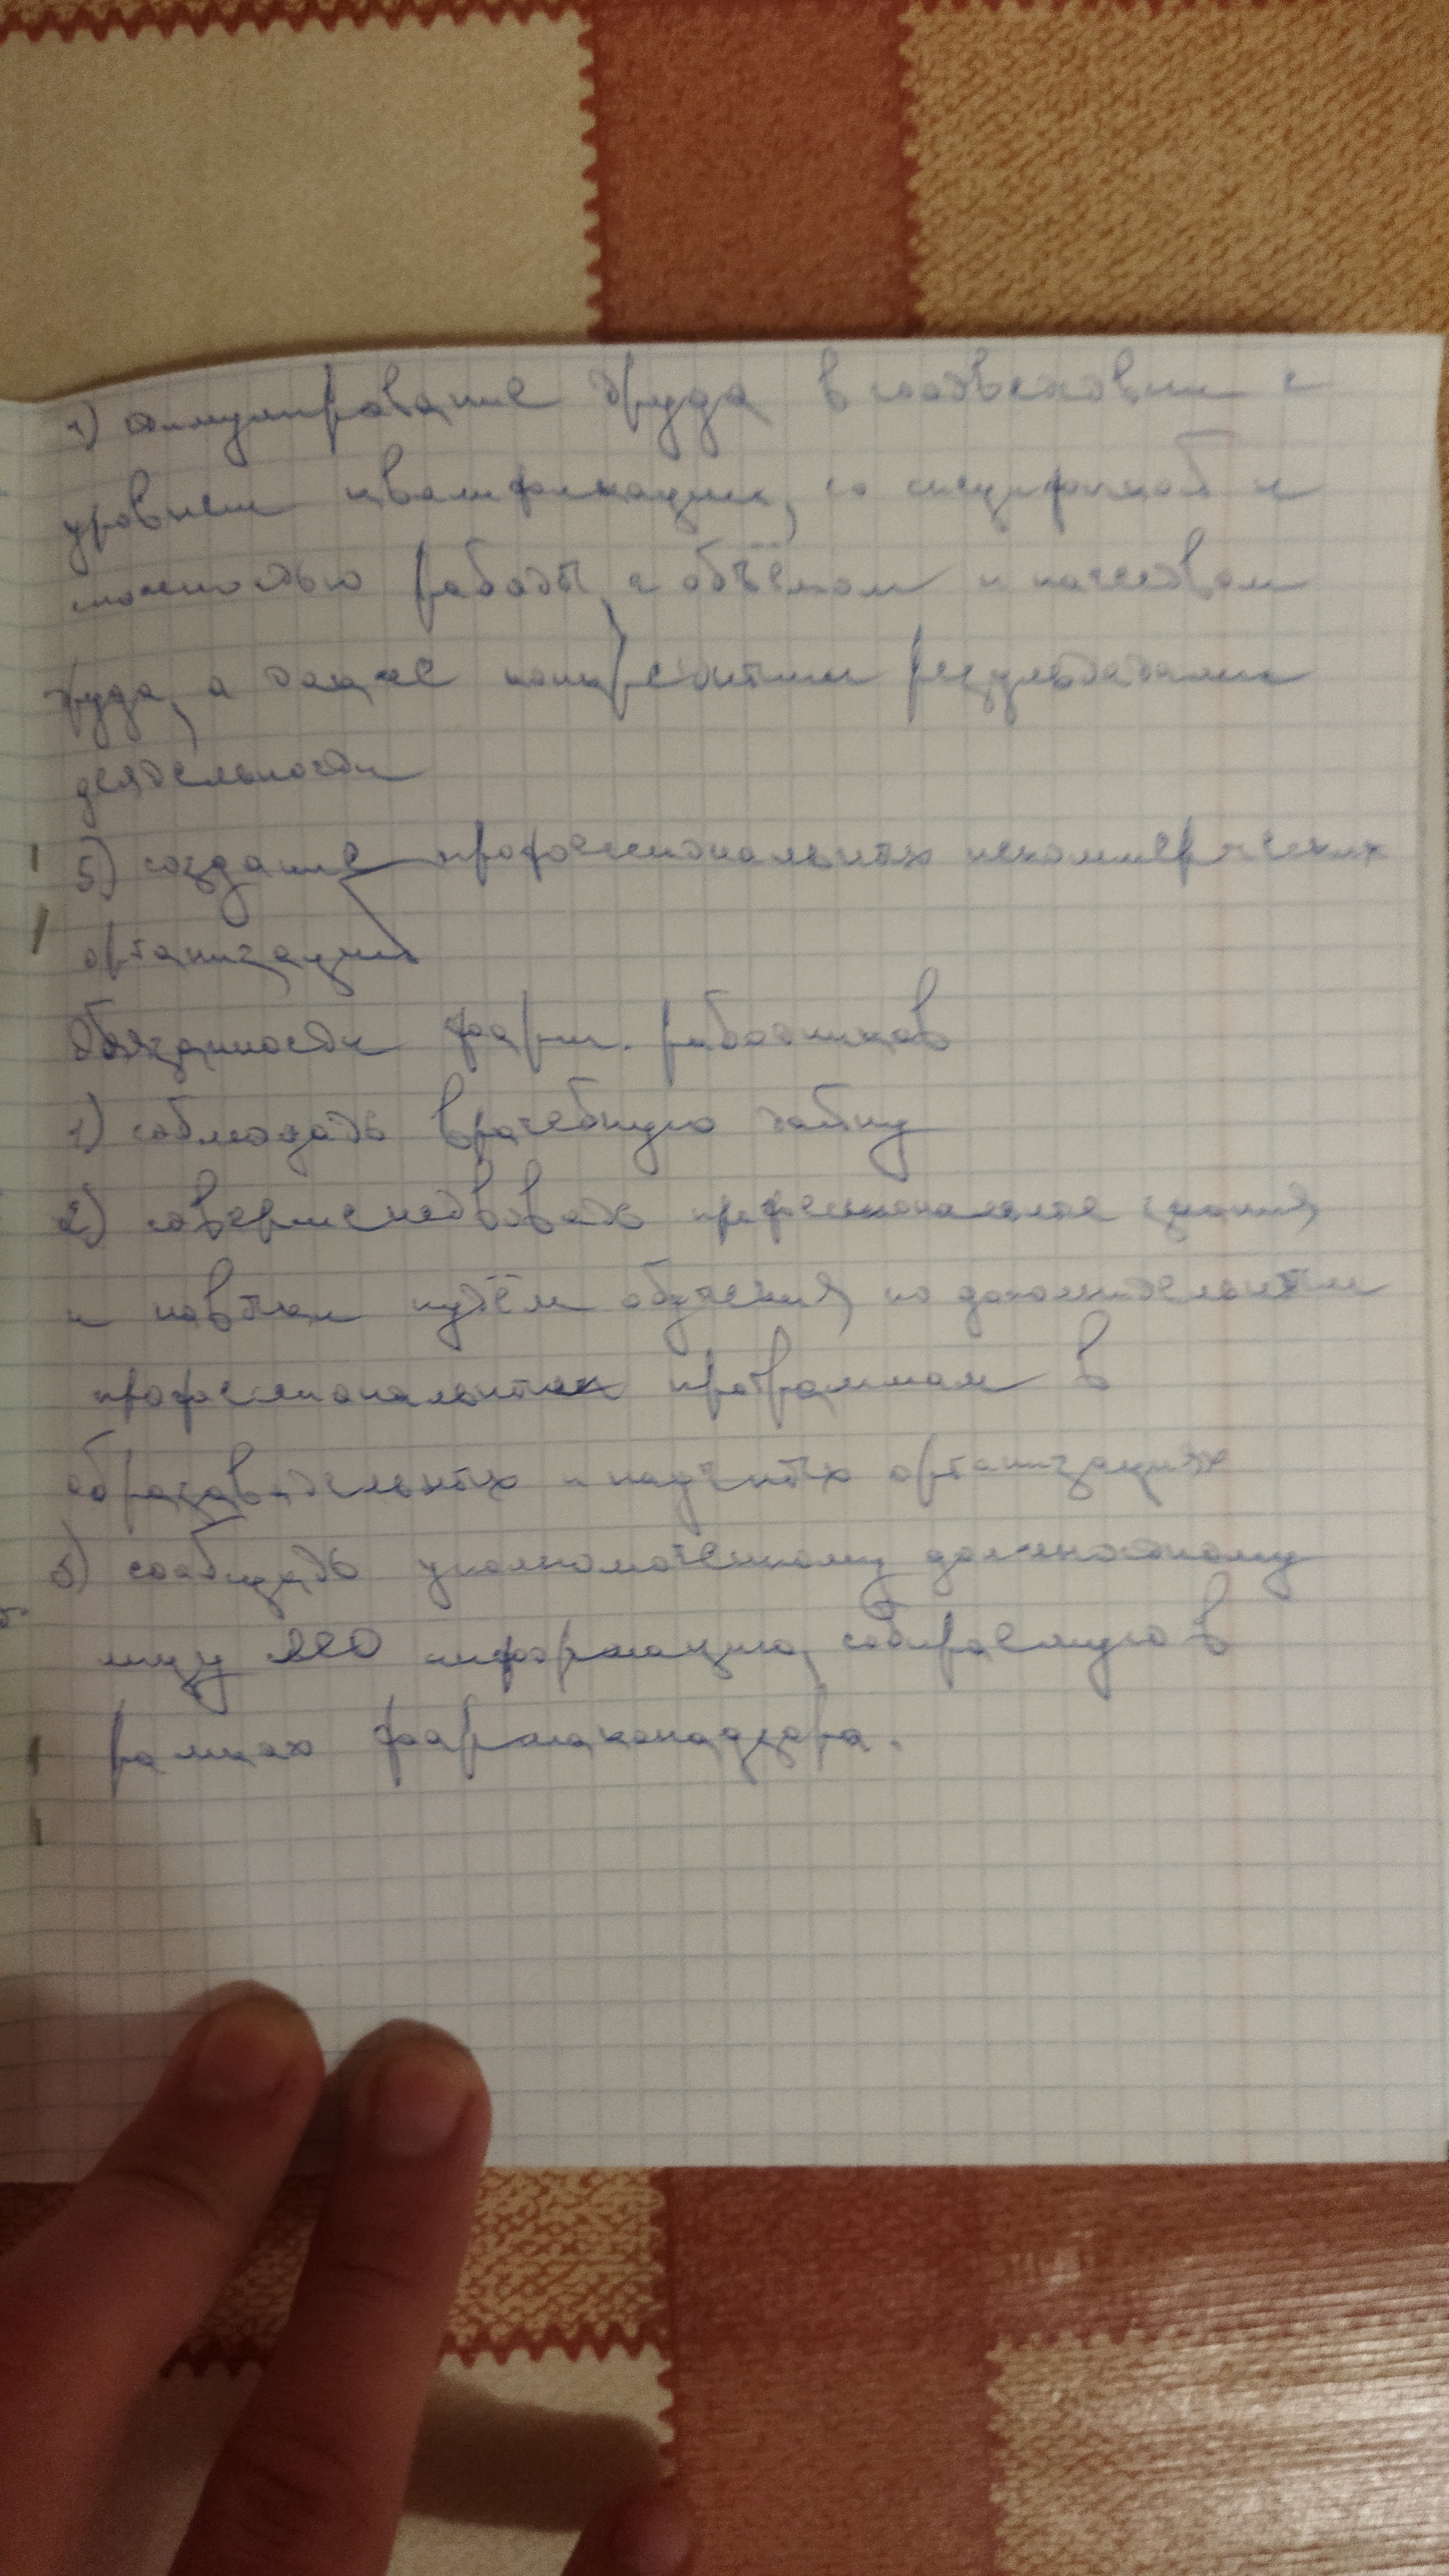 4) стимулирование труда в соответствии с
уровнем квалификации, со спецификой и
сложностью работы, с объёмом и качеством
труда, а также конкретными результатами
деятельности
5) создание профессиональных некоммерческих
организаций
Обязанности фарм. работников
1) соблюдать врачебную тайну
2) совершенствовать профессиональные знания
и навыки путём обучения по дополнительным
профессиональным программам в
образовательных и научных организациях
3) сообщать уполномоченному должностному
лицу всю информацию, собираемую в
рамках фармаконадзора.